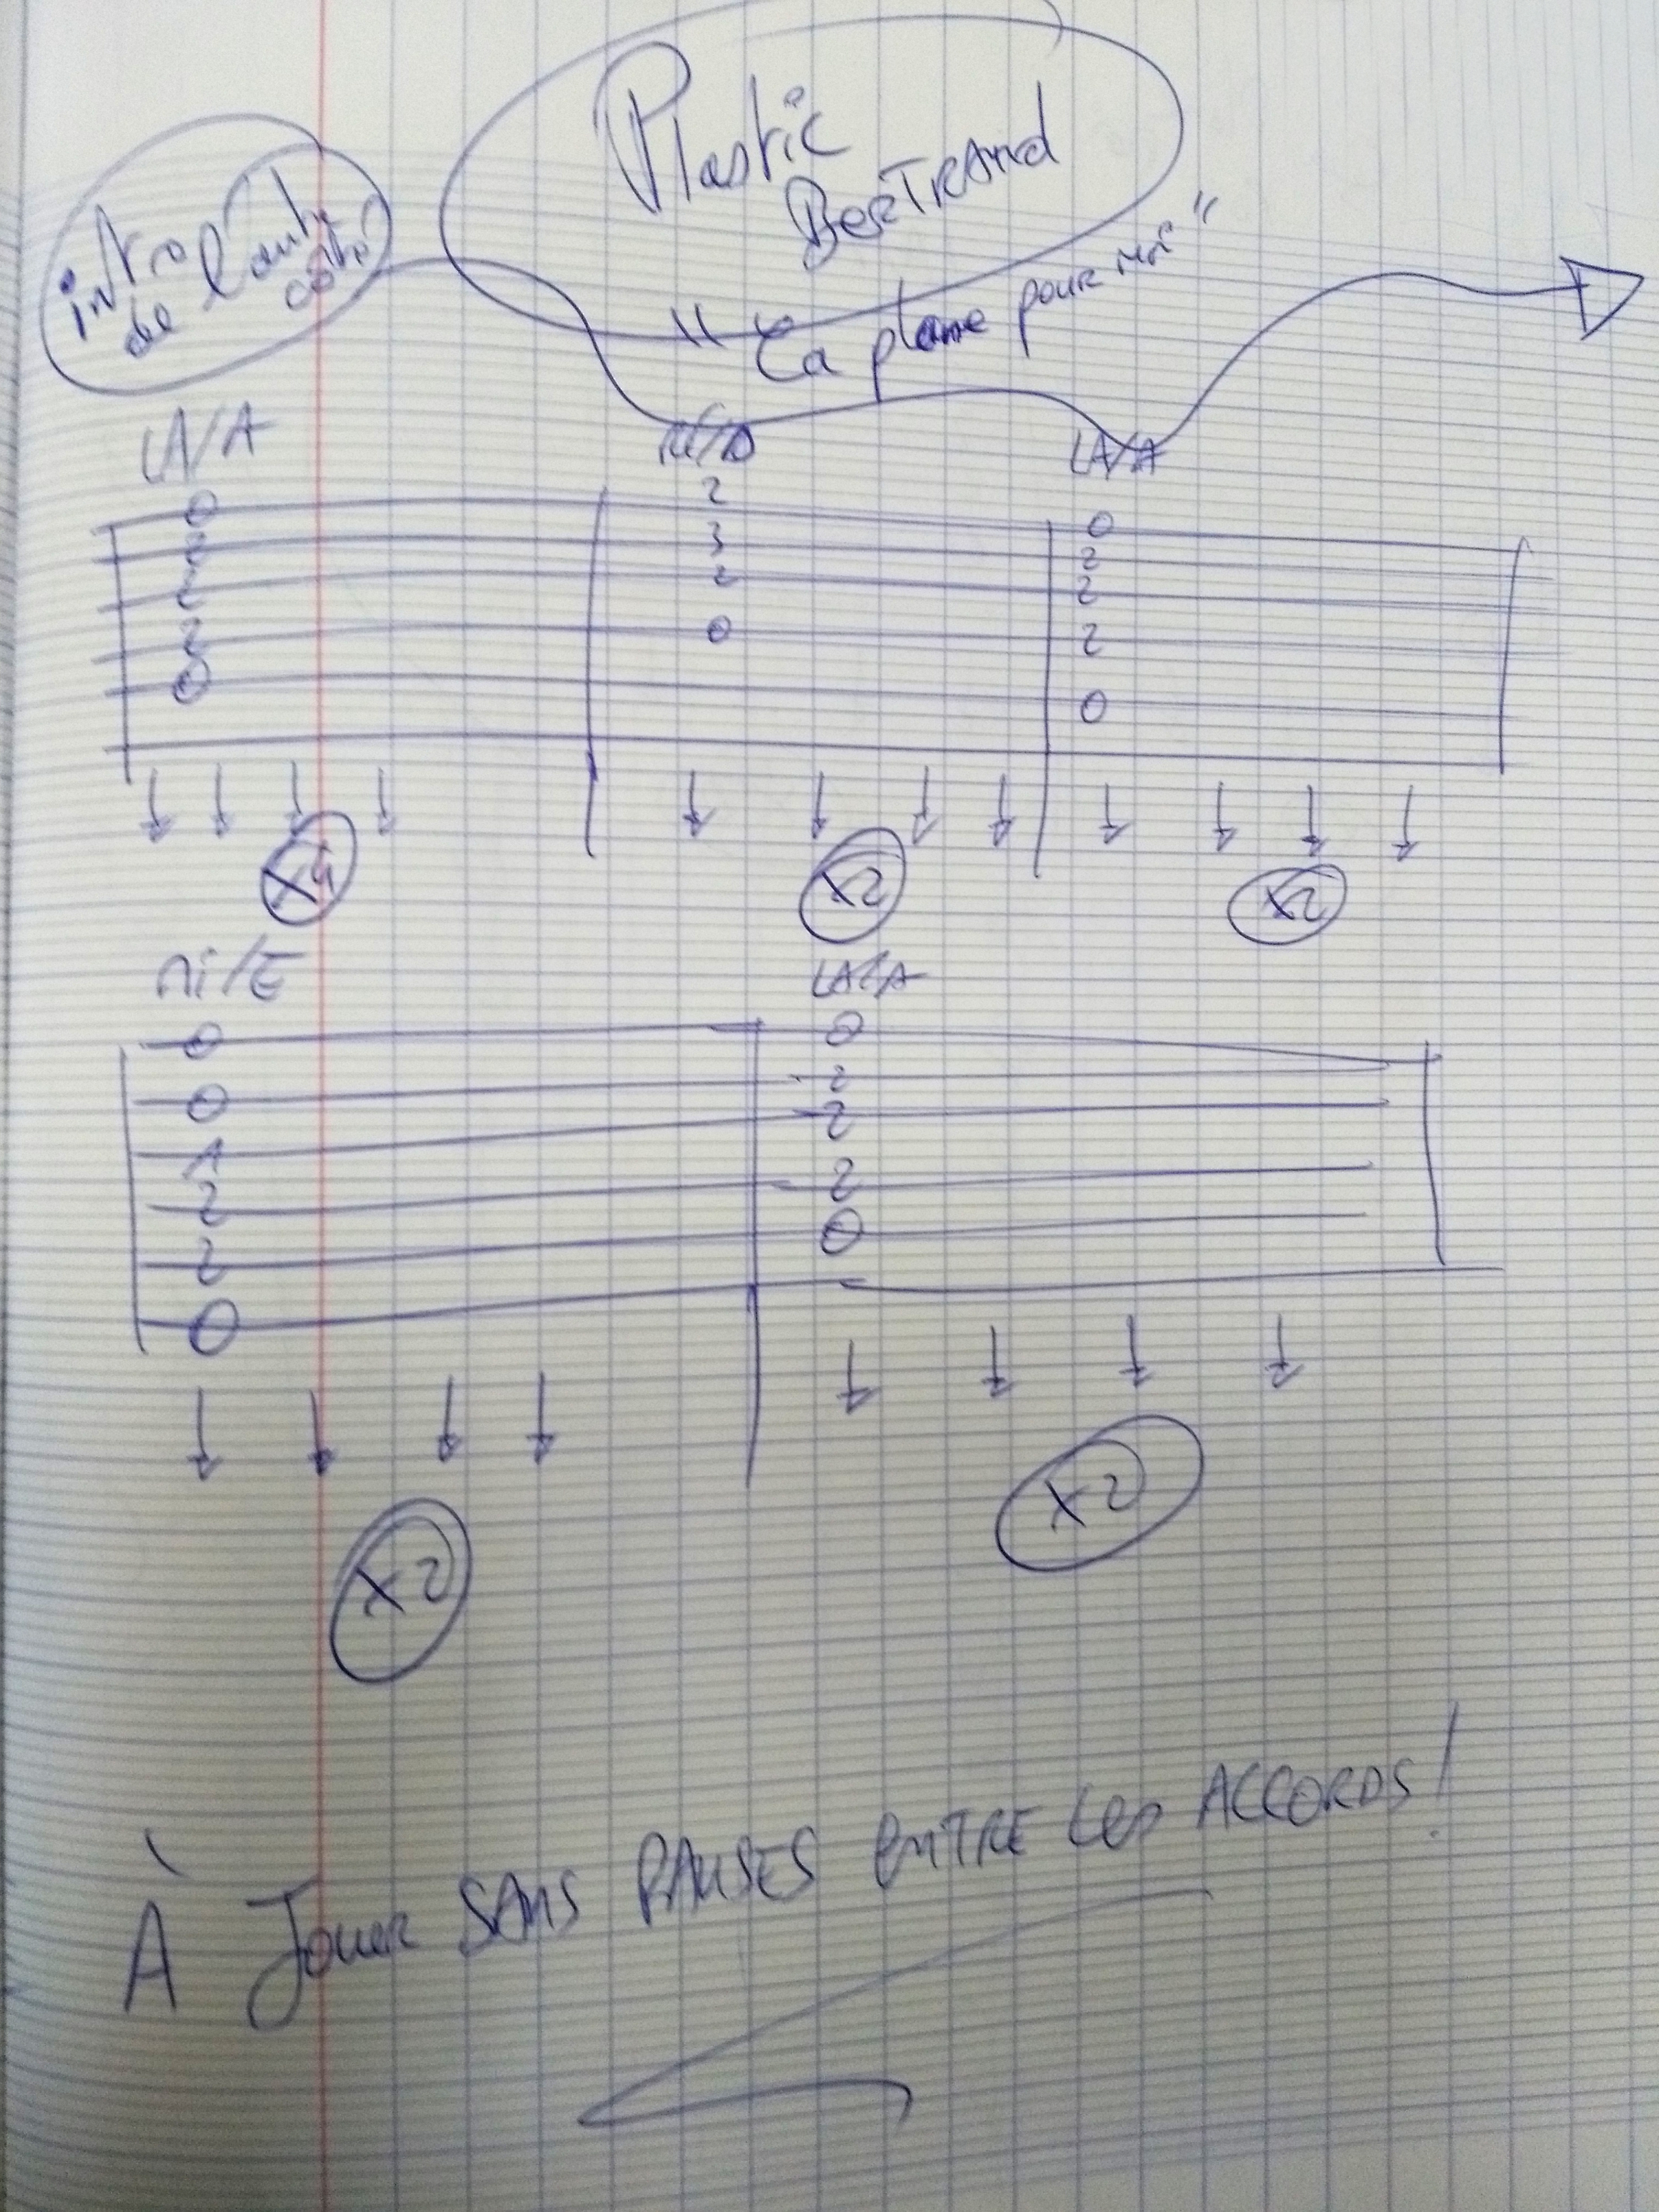 Plastic
BERTRAnd
intro
de l'autre
côté
"Ca plane pour moi"
LA/A
Ré/D
LA/A
0
2
2
2
0
2
3
2
0
0
2
2
2
0
↓ ↓ ↓ ↓
↓ ↓ ↓ ↓
↓ ↓ ↓ ↓
X4
X2
X2
mi/E
LA/A
0
0
1
2
2
0
0
2
2
2
0
↓ ↓ ↓ ↓
↓ ↓ ↓ ↓
X2
X2
À Jouer SANS PAUSES ENTRE Les ACCORDS!